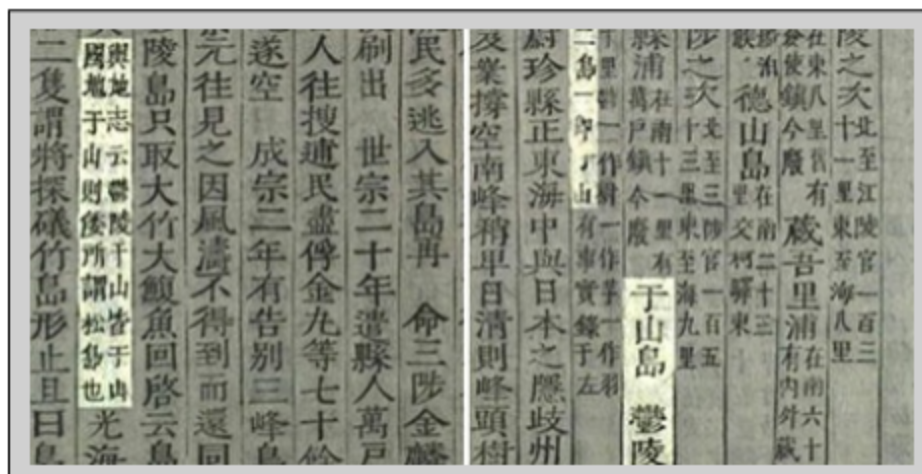 陵之次北至江陵官一百三
十一里東至海八里
在東八里舊有
今廢
藏吾里浦在南六十
有內外藏
德山島在南二十三
里交柯驛東
陟之次北至三陟官一百五
十三里東至海九里
浦在南十一里有
萬戶鎮今廢
于山島 鬱陵
十里鬱一作蔚一作芋一作羽
二島一即于山有事實錄于左
蔚珍縣正東海中與日本之隱歧州
岌嶪撐空南峰稍卑日清則峰頭樹
民多逃入其島再 命三陟金麟
刷出 世宗二十年遣縣人萬戶
人往搜逋民盡俘金九等七十餘
遂空 成宗二年有告別三峰島
元往見之因風濤不得到而還回
陵島只取大竹大鰒魚回啓云島
輿地志云鬱陵于山皆于山
國地于山則倭所謂松島也
光海
二隻謂將探礒竹島形止且曰島